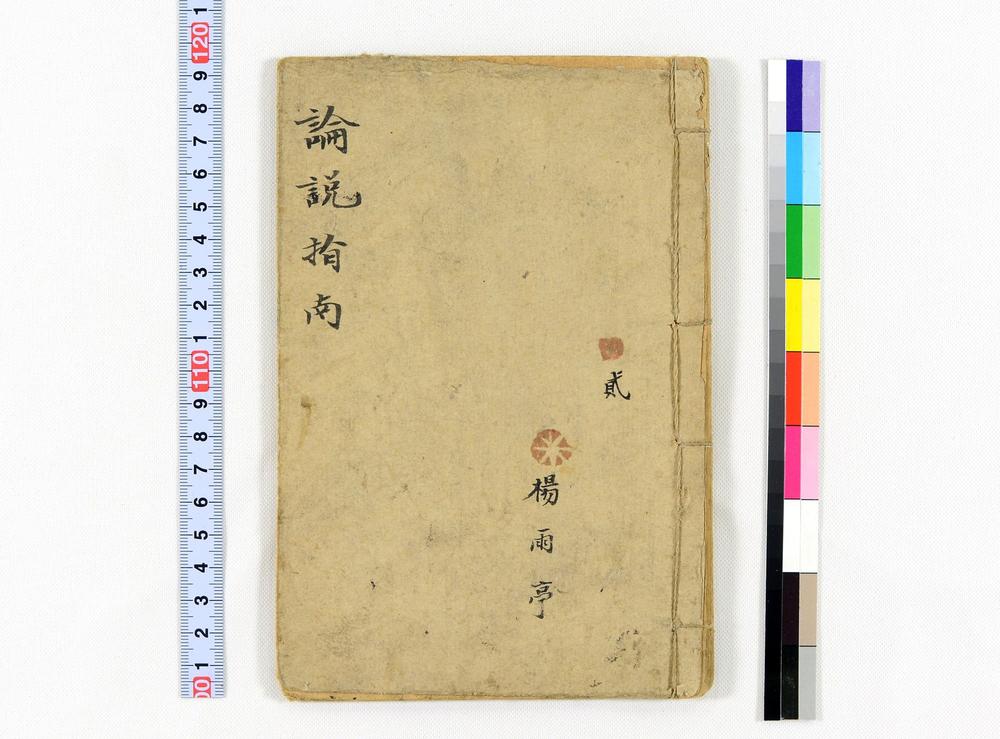 論説指南
貳
楊雨亭
120
1
9
8
7
6
5
4
3
2
1
110
9
8
7
6
5
4
3
2
1